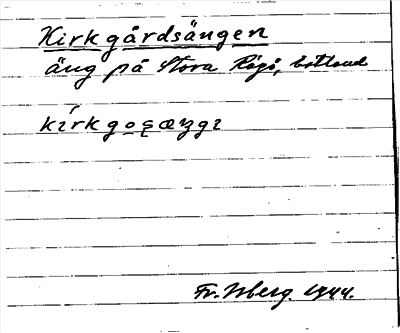 Kirkgårdsängen
äng på Stora Rågö, Estland
kírkgoşæŋgı
Fr. Isberg. 1944.